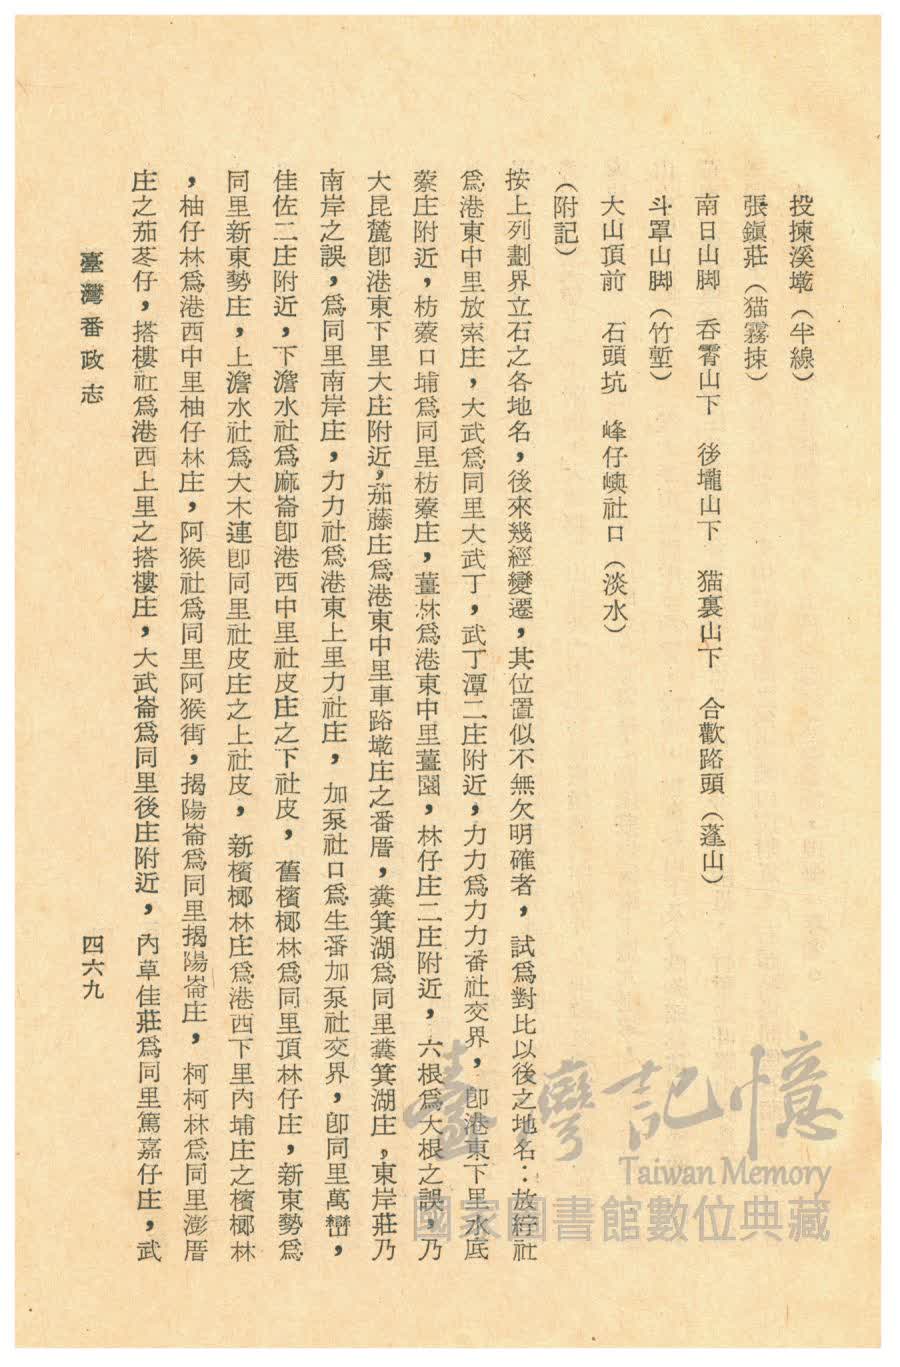 投揀溪墘（半線）
張鎭莊（猫霧揀）
南日山脚　吞霄山下　後壠山下　猫裏山下　合歡路頭（蓬山）
斗罩山脚（竹塹）
大山頂前　石頭坑　峰仔嶼社口（淡水）
（附記）
按上列劃界立石之各地名，後來幾經變遷，其位置似不無欠明確者，試爲對比以後之地名：放縤社
爲港東中里放索庄，大武爲同里大武丁，武丁潭二庄附近，力力爲力力番社交界，卽港東下里水底
藔庄附近，枋藔口埔爲同里枋藔庄，薑林爲港東中里薑園，林仔庄二庄附近，六根爲大根之誤，乃
大昆麓卽港東下里大庄附近，茄藤庄爲港東中里車路墘庄之番厝，糞箕湖爲同里糞箕湖庄，東岸莊乃
南岸之誤，爲同里南岸庄，力力社爲港東上里力社庄，加泵社口爲生番加泵社交界，卽同里萬巒，
佳佐二庄附近，下澹水社爲麻崙卽港西中里社皮庄之下社皮，舊檳榔林爲同里頂林仔庄，新東勢爲
同里新東勢庄，上澹水社爲大木連卽同里社皮庄之上社皮，新檳榔林庄爲港西下里內埔庄之檳榔林
，柚仔林爲港西中里柚仔林庄，阿猴社爲同里阿猴街，揭陽崙爲同里揭陽崙庄，柯柯林爲同里澎厝
庄之茄苳仔，搭樓社爲港西上里之搭樓庄，大武崙爲同里後庄附近，內草佳莊爲同里篤嘉仔庄，武
臺灣番政志
四六九
臺灣記憶
Taiwan Memory
國家圖書館數位典藏